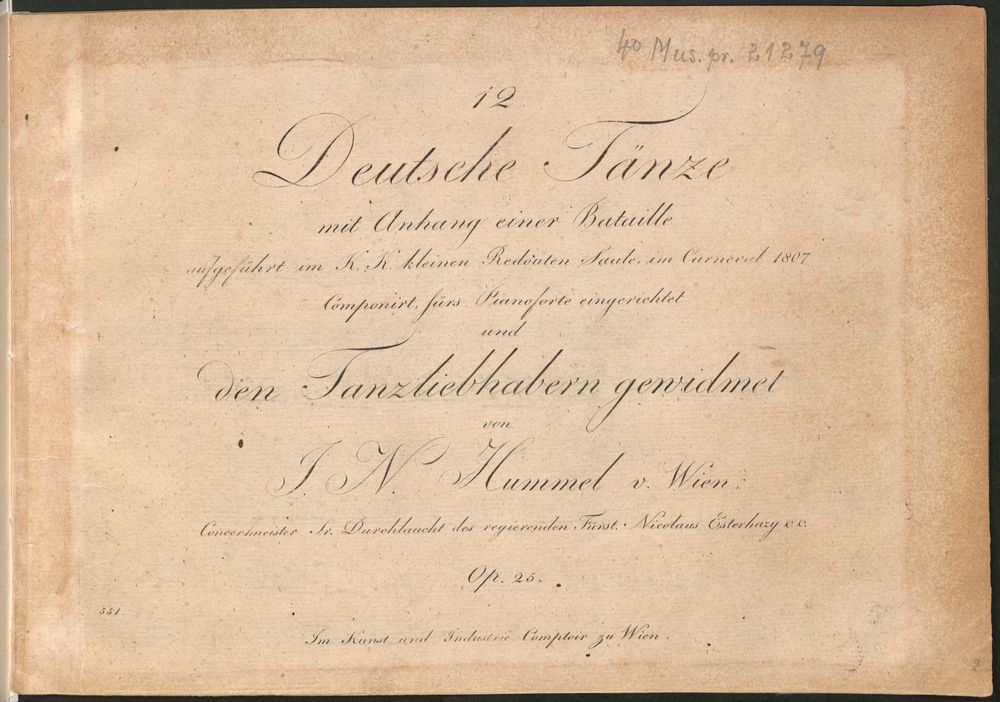 4° Mus. pr. 21279
12
Deutsche Tänze
mit Anhang einer Bataille
aufgeführt im K. K. kleinen Redoûten Saale, im Carneval 1807
Componirt, fürs Pianoforte eingerichtet
und
den Tanzliebhabern gewidmet
von
J. N. Hummel v. Wien.
Concertmeister Sr. Durchlaucht des regierenden Fürst. Nicolaus Esterhazy &c.
Op. 25.
551.
Im Kunst und Industrie Comptoir zu Wien.
2